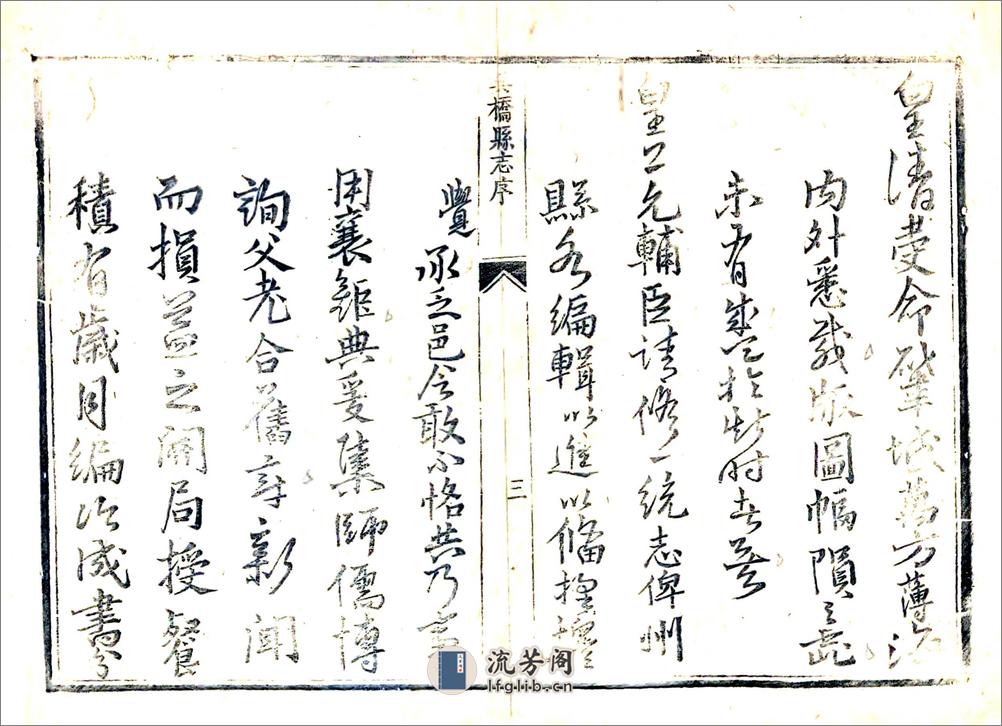 皇清受命肇域萬方薄海
内外悉載版圖幅隕之
未有盛於此时者
皇上允輔臣请修一统志俾州
縣各編輯以進以俻
吴橋縣志序
三
覺承乏邑令敢不恪共乃
用襄鉅典爰集師儒博
詢父老合舊彩新聞
而損益之開局授餐
積有歲月編次成書分
流芳阁
lfglib.cn